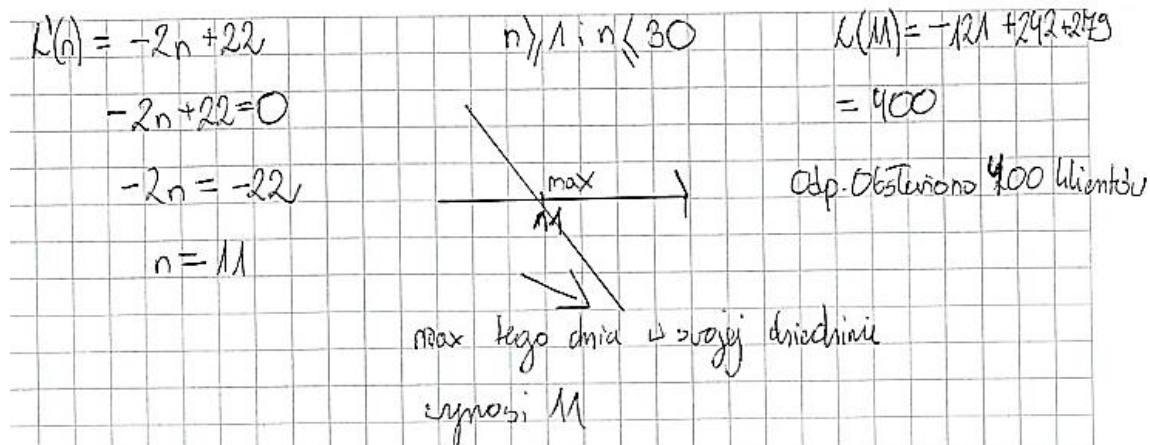 L'(n) = -2n + 22
-2n + 22 = 0
-2n = -22
n = 11
n ⩾ 1 i n ⩽ 30
max
11
max tego dnia w swojej dziedzinie
wynosi 11
L(11) = -121 + 242 + 279
= 400
Odp. Obsłużono 400 klientów